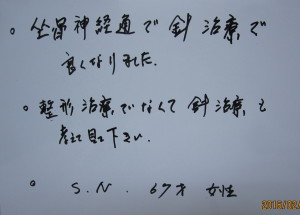 ○ 坐骨神経通で針治療で
良くなりました.
○ 整形治療でなくて針治療も
考えて見て下さい.
○ S.N. 67才 女性